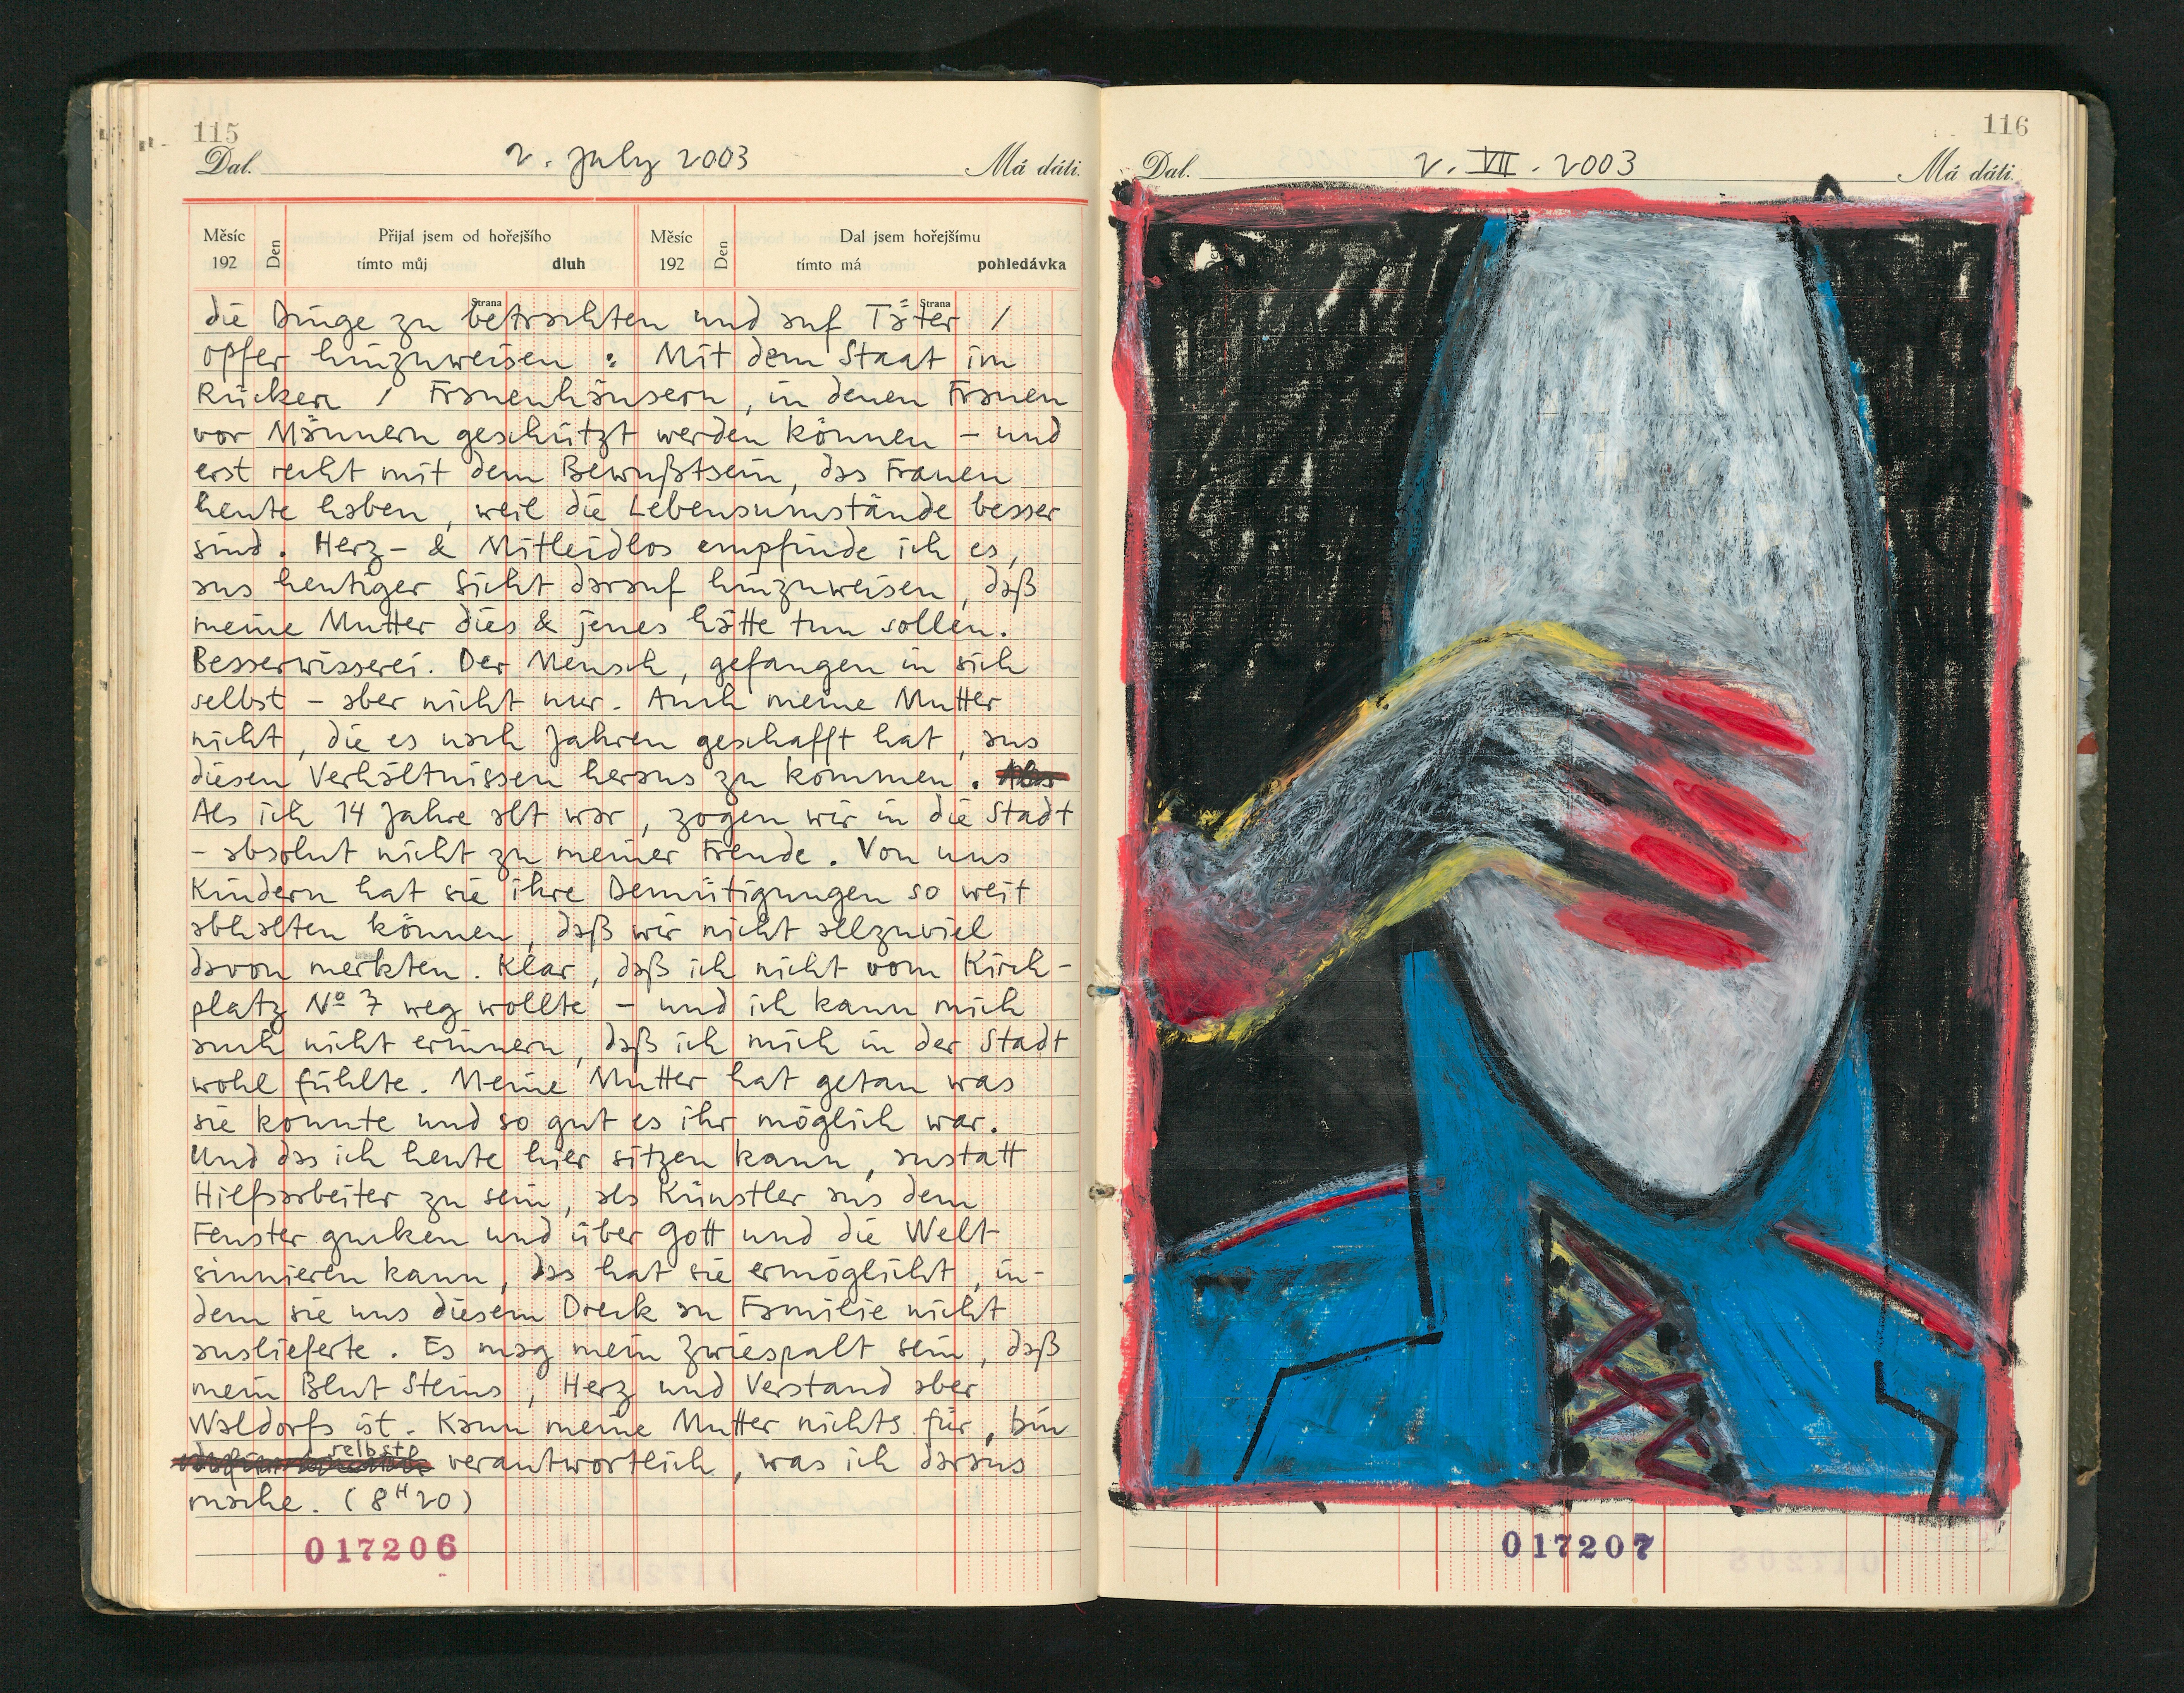 115
Dal. 2. July 2003 Má dáti.
Měsíc 192 Den Přijal jsem od hořejšího tímto můj dluh Měsíc 192 Den Dal jsem hořejšímu tímto má pohledávka
Strana Strana
die Dinge zu betrachten und auf Täter /
Opfer hinzuweisen : Mit dem Staat im
Rücken / Frauenhäusern, in denen Frauen
vor Männern geschützt werden können – und
erst recht mit dem Bewußtsein, das Frauen
heute haben, weil die Lebensumstände besser
sind. Herz- & Mitleidlos empfinde ich es,
aus heutiger Sicht darauf hinzuweisen, daß
meine Mutter dies & jenes hätte tun sollen.
Besserwisserei. Der Mensch, gefangen in sich
selbst – aber nicht nur. Auch meine Mutter
nicht, die es nach Jahren geschafft hat, aus
diesen Verhältnissen heraus zu kommen.
Als ich 14 Jahre alt war, zogen wir in die Stadt
– absolut nicht zu meiner Freude. Von uns
Kindern hat sie ihre Demütigungen so weit
abhalten können, daß wir nicht allzuviel
davon merkten. Klar, daß ich nicht vom Kirch-
platz Nº 7 weg wollte – und ich kann mich
auch nicht erinnern, daß ich mich in der Stadt
wohl fühlte. Meine Mutter hat getan was
sie konnte und so gut es ihr möglich war.
Und das ich heute hier sitzen kann, anstatt
Hilfsarbeiter zu sein, als Künstler aus dem
Fenster gucken und über Gott und die Welt
sinnieren kann, das hat sie ermöglicht, in-
dem sie uns diesem Dreck an Familie nicht
auslieferte. Es mag mein Zwiespalt sein, daß
mein Blut Steins, Herz und Verstand aber
Waldorfs ist. Kann meine Mutter nichts für, bin
selbst verantwortlich, was ich daraus
mache. (8H20)
017206
116
Dal. 2. VII. 2003 Má dáti.
017207